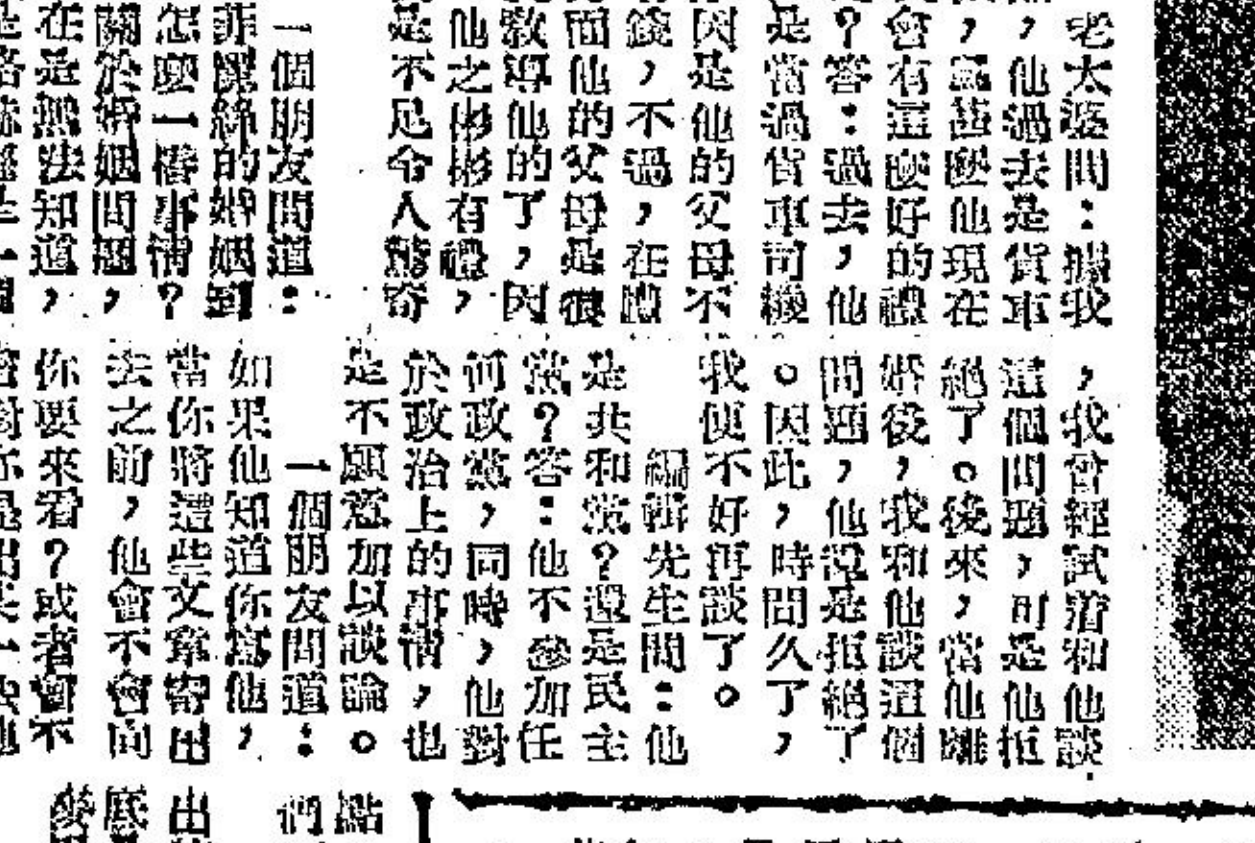 老太婆問：據我
，他過去是貨車
，爲甚麼他現在
會有這麼好的禮
？答：過去，他
是當過貨車司機
因是他的父母不
錢，不過，在
而他的父母是很
教導他的了，因
他之彬彬有禮，
是不足令人驚奇
一個朋友問道：
菲麗絲的婚姻到
怎麼一樁事情？
關於婚姻問題，
在是無法知道，
，我曾經試着和他談
這個問題，可是他拒
絕了。後來，當他離
婚後，我和他談這個
問題，他還是拒絕了
。因此，時間久了，
我便不好再談了。
編輯先生問：他
是共和黨？還是民主
黨？答：他不參加任
何政黨，同時，他對
於政治上的事情，也
是不願意加以談論。
一個朋友問道：
如果他知道你寫他，
當你將這些文章寄出
去之前，他會不會向
你要來看？或者會不
點
們
出
底